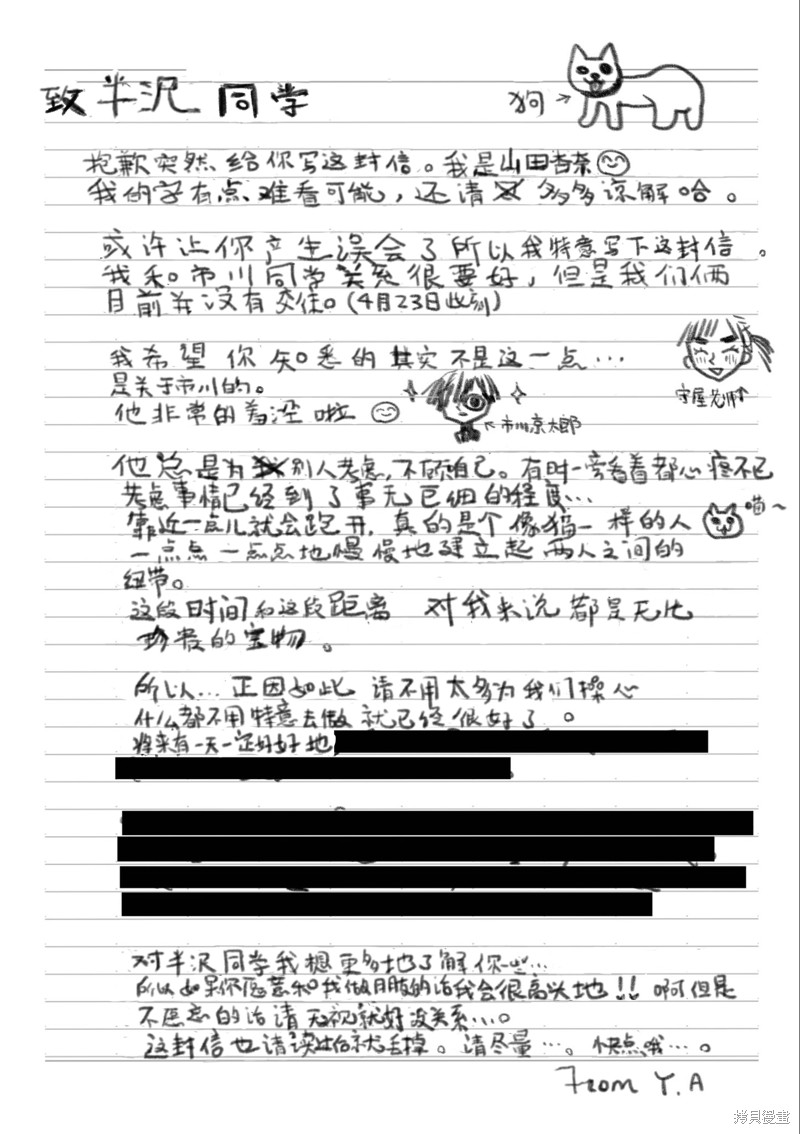 致半沢同学
狗→
抱歉突然给你写这封信。我是山田杏奈
我的字有点难看可能，还请多多谅解哈。
或许让你产生误会了所以我特意写下这封信。
我和市川同学关系很要好，但是我们俩
目前并没有交往。(4月23日此刻)
我希望你知悉的其实不是这一点…
是关于市川的。
守屋老师↑
他非常的羞涩啦
←市川京太郎
他总是为别人考虑，不顾自己。有时一旁看着都心疼不已
考虑事情已经到了事无巨细的程度…
靠近一点儿就会跑开，真的是个像猫一样的人
喵～
一点点一点点地慢慢地建立起两人之间的
纽带。
这段时间和这段距离 对我来说都是无比
珍贵的宝物。
所以…正因如此 请不用太多为我们操心
什么都不用特意去做就已经很好了。
将来有一天一定好好地
对半沢同学我想更多地了解你一些…
所以如果你愿意和我做朋友的话我会很高兴地!!啊但是
不愿意的话请无视就好没关系…。
这封信也请读出后就丢掉。请尽量…。快点哦…。
From Y.A
拷貝漫畫